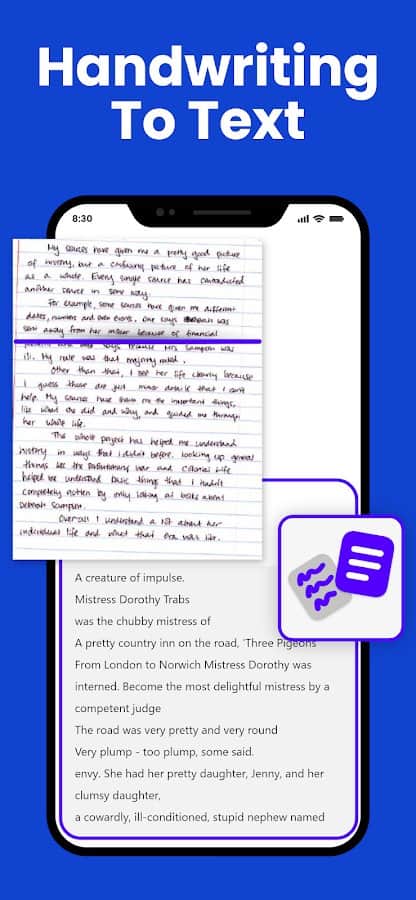 Handwriting
To Text
8:30
My sources have given me a pretty good picture
of history, but a picture of her life
as a whole. Every single source has contradicted
another source in some way.
For example, some sources have given me different
dates, numbers and even events. One says was
away from her because of financial
says because Mrs. Sampson was
ill. My rule was that majority ruled.
Other than that, I see her life clearly because
I guess those are just minor details that I can't
help. My sources have shown me the important things,
like what she did and why and guided me through
her whole life.
The whole project has helped me understand
history in ways that I didn't before. Looking up general
things like the Revolutionary War and Colonial Life
helped me understand basic things that I hadn't
completely gotten by only looking at books about
Deborah Sampson.
Overall I understand a lot about her
individual life and what that era was like.
A creature of impulse.
Mistress Dorothy Trabs
was the chubby mistress of
A pretty country inn on the road, 'Three Pigeons
From London to Norwich Mistress Dorothy was
interned. Become the most delightful mistress by a
competent judge
The road was very pretty and very round
Very plump - too plump, some said.
envy. She had her pretty daughter, Jenny, and her
clumsy daughter,
a cowardly, ill-conditioned, stupid nephew named